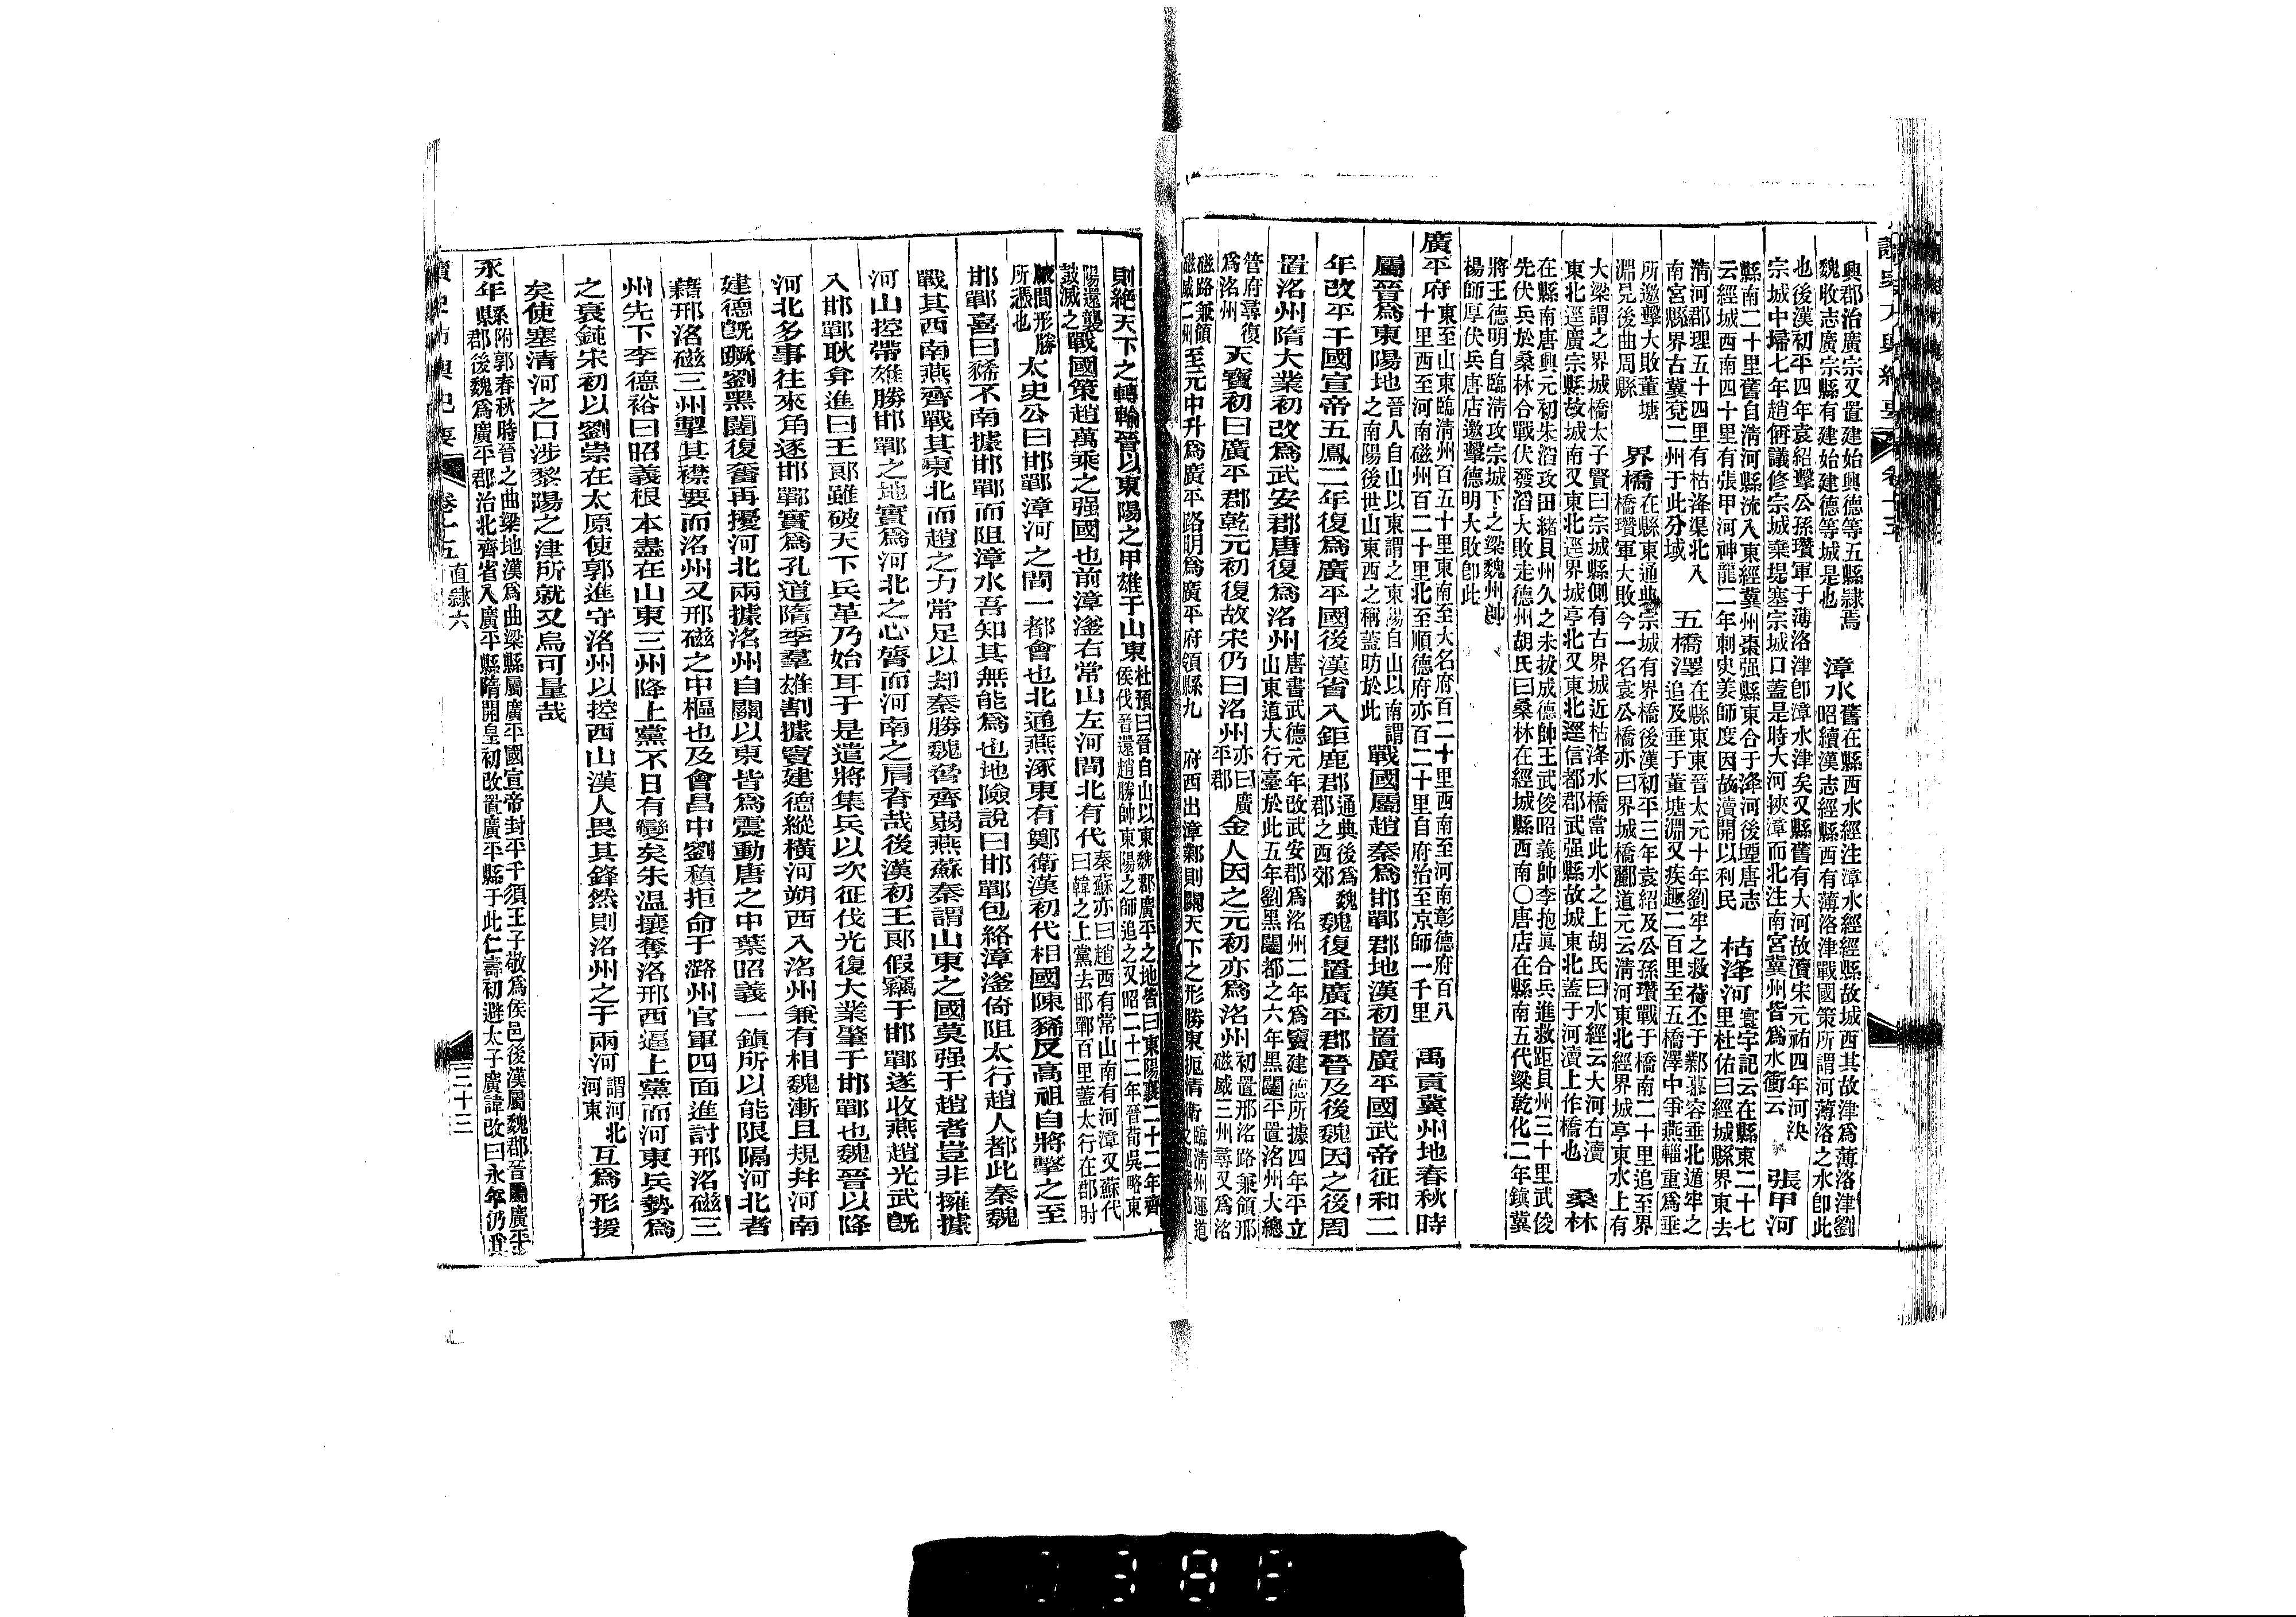 讀史方輿紀要 卷十五
興郡治廣宗又置建始興德等五縣隸焉
魏收志廣宗縣有建始建德等城是也
漳水舊在縣西水經注漳水經經縣故城西其故津爲薄洛津劉
昭續漢志經縣西有薄洛津戰國策所謂河薄洛之水卽此
也後漢初平四年袁紹擊公孫瓚軍于薄洛津卽漳水津矣又縣舊有大河故瀆宋元祐四年河決
宗城中埽七年趙偁議修宗城棄堤塞宗城口蓋是時大河挾漳而北注南宮冀州皆爲水衝云
張甲河
縣南二十里舊自清河縣流入東經冀州棗强縣東合于浲河後堙唐志
云經城西南四十里有張甲河神龍二年刺史姜師度因故瀆開以利民
枯洚河寰宇記云在縣東二十七
里杜佑曰經城縣界東去
清河郡理五十四里有枯洚渠北入
南宮縣界古冀兗二州于此分域
五橋澤在縣東東晉太元十年劉牢之救苻丕于鄴慕容垂北遁牢之
追及垂于董塘淵又疾趣二百里至五橋澤中爭燕輜重爲垂
所邀擊大敗董塘
淵見後曲周縣
界橋在縣東通典宗城有界橋後漢初平三年袁紹及公孫瓚戰于橋南二十里追至界
橋瓚軍大敗今一名袁公橋亦曰界城橋酈道元云清河東北經界城亭東水上有
大梁謂之界城橋太子賢曰宗城縣側有古界城近枯洚水橋當此水之上胡氏曰水經云大河右瀆
東北逕廣宗縣故城南又東北逕界城亭北又東北逕信都郡武强縣故城東北蓋于河瀆上作橋也
桑林
在縣南唐興元初朱滔攻田緒貝州久之未拔成德帥王武俊昭義帥李抱眞合兵進救距貝州三十里武俊
先伏兵於桑林合戰伏發滔大敗走德州胡氏曰桑林在經城縣西南○唐店在縣南五代梁乾化二年鎮冀
將王德明自臨清攻宗城下之梁魏州帥
楊師厚伏兵唐店邀擊德明大敗卽此
廣平府東至山東臨淸州百五十里東南至大名府百二十里西南至河南彰德府百八
十里西至河南磁州百二十里北至順德府亦百二十里自府治至京師一千里
禹貢冀州地春秋時
屬晉爲東陽地晉人自山以東謂之東陽自山以南謂
之南陽後世山東西之稱蓋昉於此
戰國屬趙秦爲邯鄲郡地漢初置廣平國武帝征和二
年改平干國宣帝五鳳二年復爲廣平國後漢省入鉅鹿郡通典後爲魏
郡之西郊
魏復置廣平郡晉及後魏因之後周
置洺州隋大業初改爲武安郡唐復爲洺州唐書武德元年改武安郡爲洺州二年爲竇建德所據四年平立
山東道大行臺於此五年劉黑闥都之六年黑闥平置洺州大總
管府尋復
爲洺州
天寶初曰廣平郡乾元初復故宋仍曰洺州亦曰廣
平郡
金人因之元初亦爲洺州初置邢洺路兼領邢
磁威三州尋又爲洺
磁路兼領
磁威二州
至元中升爲廣平路明爲廣平府領縣九
府西出漳鄴則關天下之形勝東扼清衛臨清州運道
則絕天下之轉輸晉以東陽之甲雄于山東杜預曰晉自山以東魏郡廣平之地皆曰東陽襄二十二年齊
侯伐晉還趙勝帥東陽之師追之又昭二十二年晉荀吳略東
陽還襲
鼓滅之
戰國策趙萬乘之强國也前漳滏右常山左河間北有代秦蘇亦曰趙西有常山南有河漳又蘇代
曰韓之上黨去邯鄲百里蓋太行在郡肘
腋間形勝
所憑也
太史公曰邯鄲漳河之間一都會也北通燕涿東有鄭衛漢初代相國陳豨反高祖自將擊之至
邯鄲喜曰豨不南據邯鄲而阻漳水吾知其無能爲也地險說曰邯鄲包絡漳滏倚阻太行趙人都此秦魏
戰其西南燕齊戰其東北而趙之力常足以却秦勝魏脅齊弱燕蘇秦謂山東之國莫强于趙者豈非擁據
河山控帶雄勝邯鄲之地實爲河北之心膂而河南之肩脊哉後漢初王郞假竊于邯鄲遂收燕趙光武旣
入邯鄲耿弇進曰王郞雖破天下兵革乃始耳于是遣將集兵以次征伐光復大業肇于邯鄲也魏晉以降
河北多事往來角逐邯鄲實爲孔道隋季羣雄割據竇建德縱橫河朔西入洺州兼有相魏漸且規幷河南
建德旣蹶劉黑闥復奮再擾河北兩據洺州自關以東皆爲震動唐之中葉昭義一鎮所以能限隔河北者
藉邢洺磁三州掣其襟要而洺州又邢磁之中樞也及會昌中劉稹拒命于潞州官軍四面進討邢洺磁三
州先下李德裕曰昭義根本盡在山東三州降上黨不日有變矣朱温攘奪洺邢西逼上黨而河東兵勢爲
之衰鈍宋初以劉崇在太原使郭進守洺州以控西山漢人畏其鋒然則洺州之于兩河謂河北
河東
互爲形援
矣使塞清河之口涉黎陽之津所就又烏可量哉
永年縣附郭春秋時晉之曲梁地漢爲曲梁縣屬廣平國宣帝封平干須王子敬爲侯邑後漢屬魏郡晉屬廣平
郡後魏爲廣平郡治北齊省入廣平縣隋開皇初改置廣平縣于此仁壽初避太子廣諱改曰永年仍爲
讀史方輿紀要 卷十五 直隸六 三十三